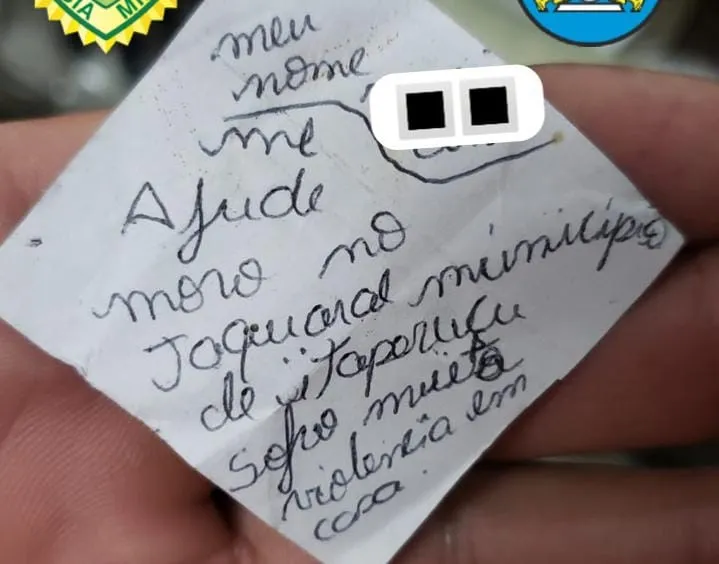 IA MI
meu
nome
me
Ajude
moro no
Jaquaral município
de itaperuçu
sofro muita
violencia em
casa.